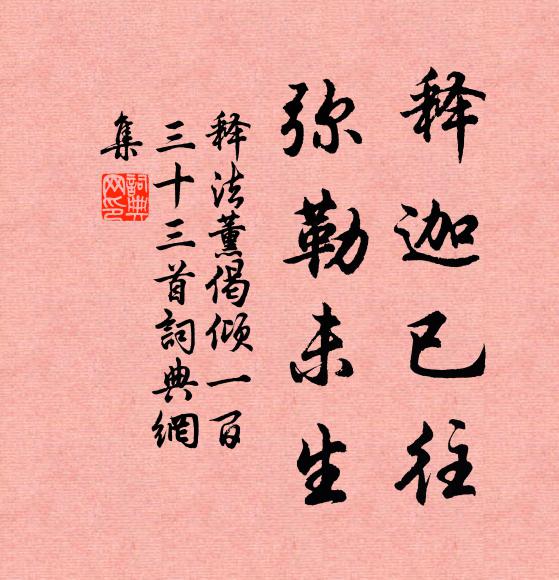 释迦已往
弥勒未生
释法薰偈倾一百
三十三首詞典網
集
詞典
网印